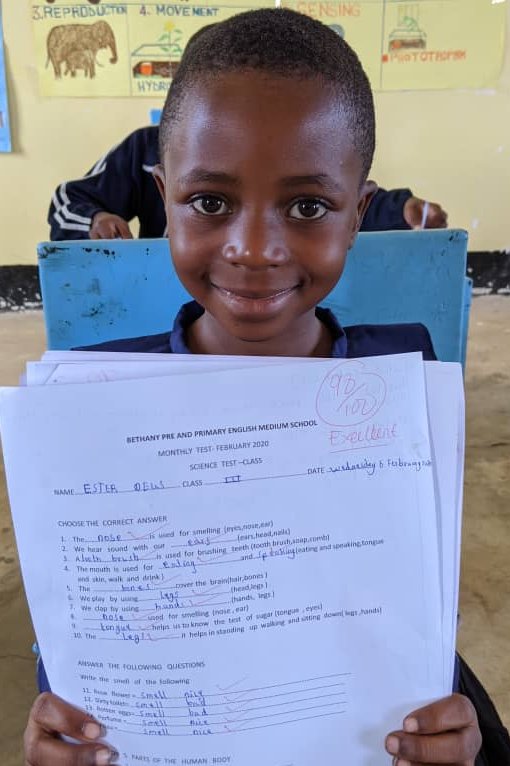 3. REPRODUCTION 4. MOVEMENT 5. SENSING
PHOTOTROPISM
90/100
Excellent
BETHANY PRE AND PRIMARY ENGLISH MEDIUM SCHOOL
MONTHLY TEST- FEBRUARY 2020
SCIENCE TEST –CLASS
NAME ESTER CLASS III DATE
CHOOSE THE CORRECT ANSWER
1. The nose is used for smelling (eyes,nose,ear)
2. We hear sound with our ears (ears,head,nails)
3. A tooth brush is used for brushing teeth (tooth brush,soap,comb)
4. The mouth is used for Eating and speaking (eating and speaking,tongue
and skin, walk and drink)
5. The bones cover the brain(hair,bones)
6. We play by using legs (head,legs)
7. We clap by using hands (hands, legs)
8. nose used for smelling (nose , ear)
9. tongue helps us to know the test of sugar (tongue , eyes)
10. The legs it helps in standing up walking and sitting down( legs /hands)
ANSWER THE FOLLOWING QUESTIONS
Write the smell of the following
11. Rose flower= smell nice
12. Dirty toilet= smell bad
13. Rotten eggs= smell bad
Perfume= smell nice
smell nice
5 PARTS OF THE HUMAN BODY